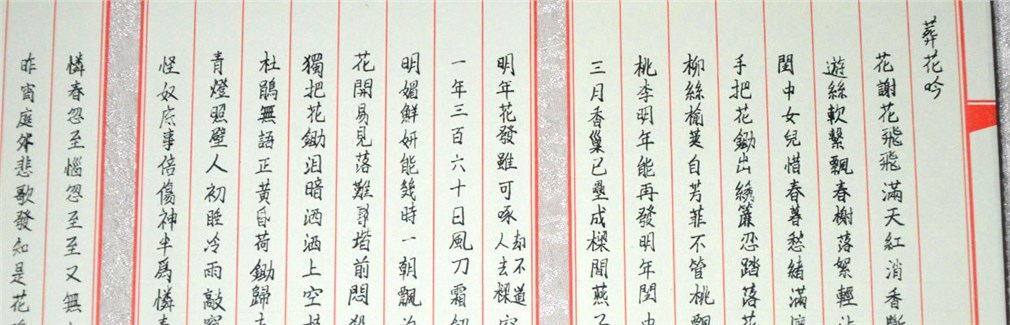 葬花吟
花謝花飛飛滿天紅消香斷
遊絲軟繫飄春榭落絮輕沾
閨中女兒惜春暮愁緒滿
手把花鋤出綉簾忍踏落花
柳絲榆莢自芳菲不管桃飄
桃李明年能再發明年閨中
三月香巢已壘成樑間燕子
明年花發雖可啄却不道人去樑空
一年三百六十日風刀霜劍
明媚鮮妍能幾時一朝飄
花開易見落難尋堦前悶殺
獨把花鋤泪暗洒洒上空枝
杜鵑無語正黃昏荷鋤歸去
青燈照壁人初睡冷雨敲窗
怪奴底事倍傷神半為憐春
憐春忽至惱忽至至又無
昨宵庭外悲歌發知是花